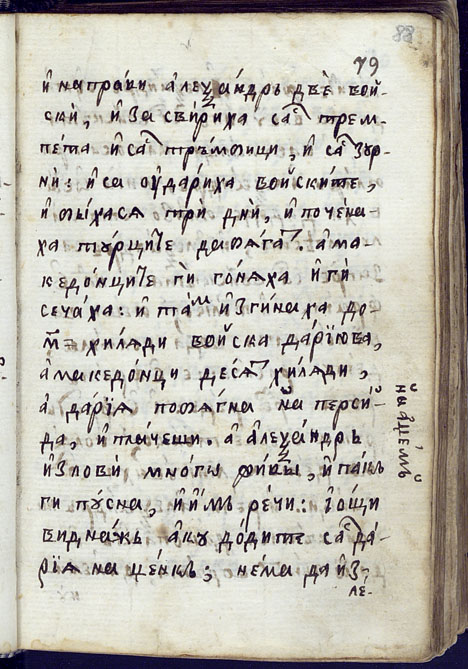 79
88
и҆ напра́ви а҆леѯа́ндрь двѐ вой-
скѝ, и҆ засви́риха са̾ трем-
пе́та и҆ са̾ тръ́мпици, и҆ са̾ зур-
ни̑: и҆ са ѹ҆да́риха войски́те,
и҆ би́хасѧ трѝ днѝ, и҆ поче́на-
ха ту́рците да бѧ́гат. а҆ ма-
кедо́нците гѝ го́нѧха и҆ гѝ
сеча́ха: и҆ та́м и҆зги́наха до-
м҃= хи́лѧди войска да́рїюва,
а҆ македо́нци де́сѧт хи́лѧди,
а҆ да́рїѧ побѧ́гна на перси́-
да, и҆ та́чещи. а҆ а҆леѯа́ндрь
и҆зловѝ мно́гѡ жи́вы, и҆ па́кь
ги пу́сна, и҆ и҆̀мь ре́чи: ї҆ о́щи
видна́жь а҆ку до́дите са̾ да́-
рїѧ на це́нкь; не́ма да и҆з-
ле-
на а҆це́мь